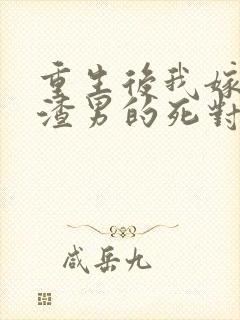 重生後我嫁
渣男的死對
咸岳九